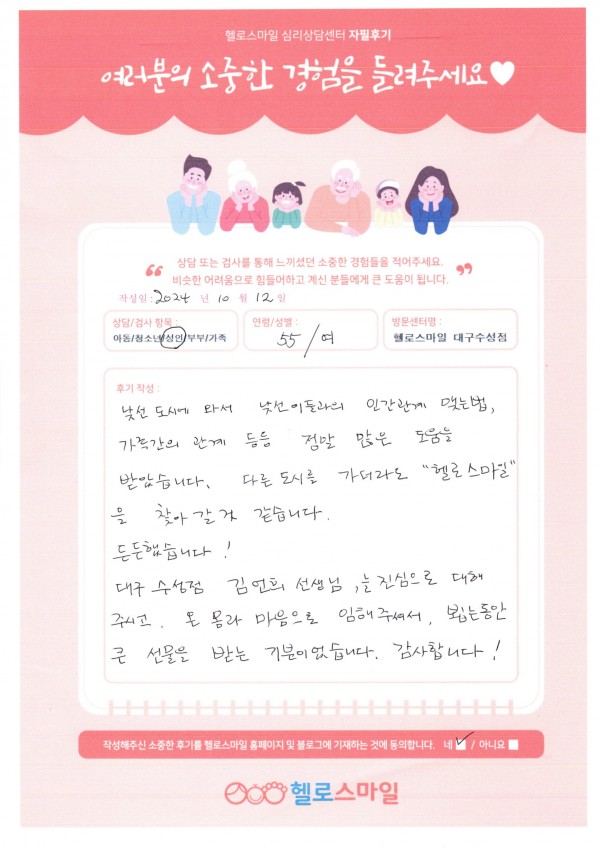 헬로스마일 심리상담센터 자필후기
여러분의 소중한 경험을 들려주세요♥
상담 또는 검사를 통해 느끼셨던 소중한 경험들을 적어주세요.
“ 비슷한 어려움으로 힘들어하고 계신 분들에게 큰 도움이 됩니다. ”
작성일 : 2024 년 10 월 12 일
상담/검사 항목 :
아동/청소년/성인/부부/가족
연령/성별 :
55 / 여
방문센터명 :
헬로스마일 대구수성점
후기 작성 :
낯선 도시에 와서 낯선이들과의 인간관계 맺는법,
가족간의 관계 등등 정말 많은 도움을
받았습니다. 다른 도시를 가더라도 “헬로스마일”
을 찾아 갈 것 같습니다.
든든했습니다!
대구 수성점 김연희 선생님, 늘 진심으로 대해
주시고. 온 몸과 마음으로 임해주셔서, 뵙는동안
큰 선물을 받는 기분이었습니다. 감사합니다!
작성해주신 소중한 후기를 헬로스마일 홈페이지 및 블로그에 기재하는 것에 동의합니다. 네 ✓ / 아니요
헬로스마일